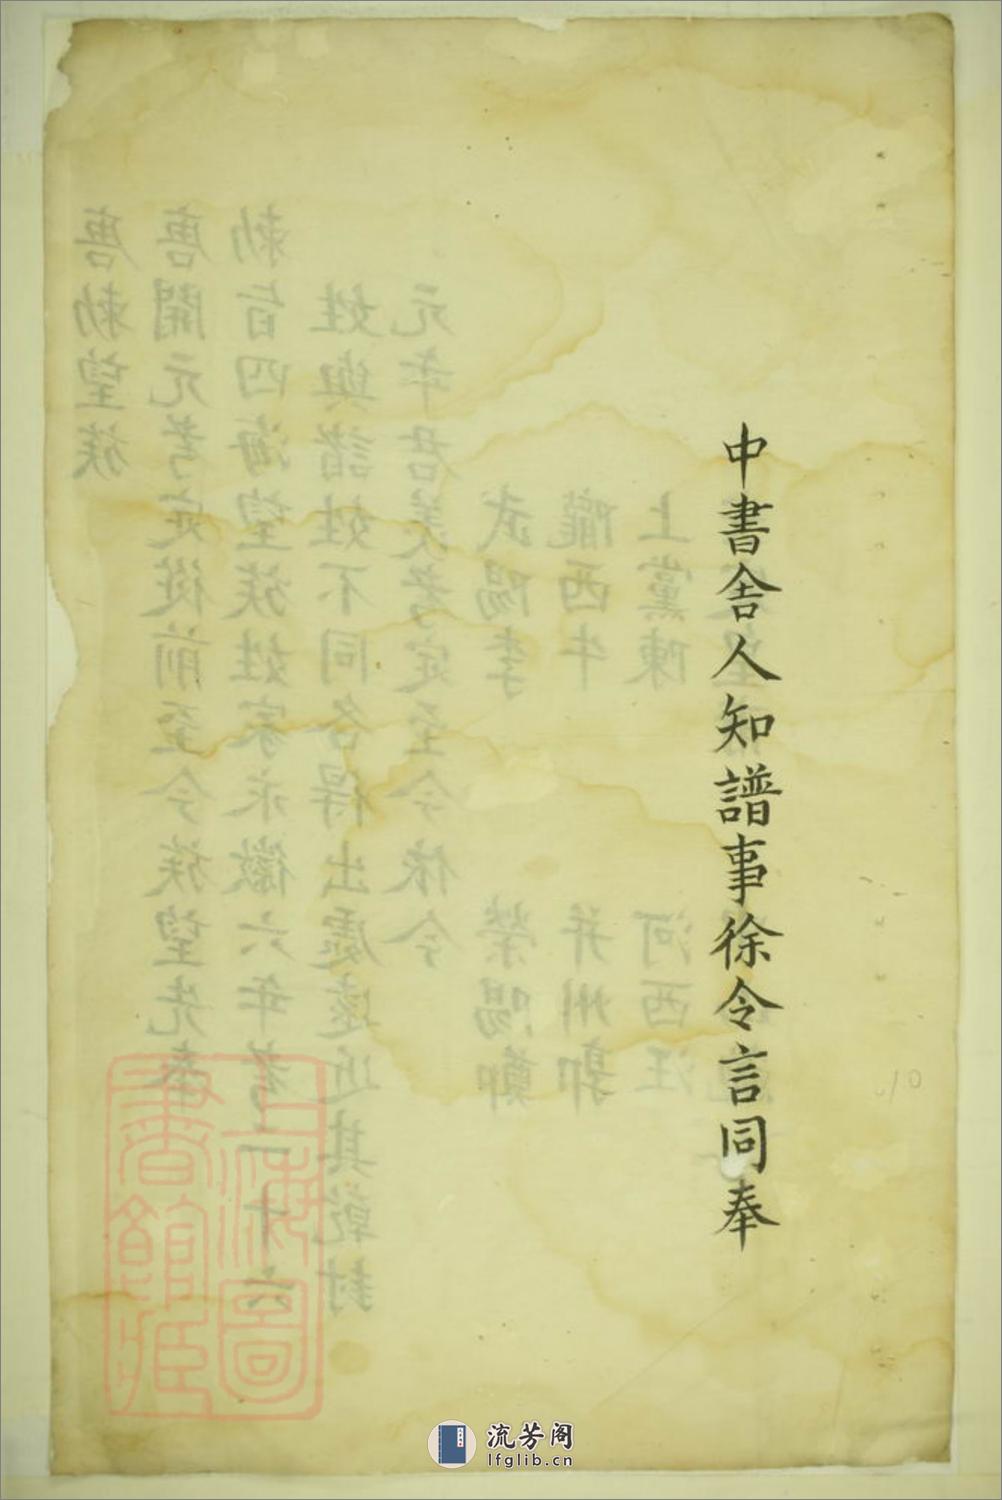 中書舍人知譜事徐令言同奉
上黨陳
河西汪
隴西牛
并州郭
武陽李
滎陽鄭
元年君羨考定至今依今
姓與諸姓不同各得出處遠近其乾封
勅旨四海望族姓家永徽六年考二十六
唐開元考定從前至今族望先奉
唐勅望族
上海圖書館藏
10
流芳阁
lfglib.cn